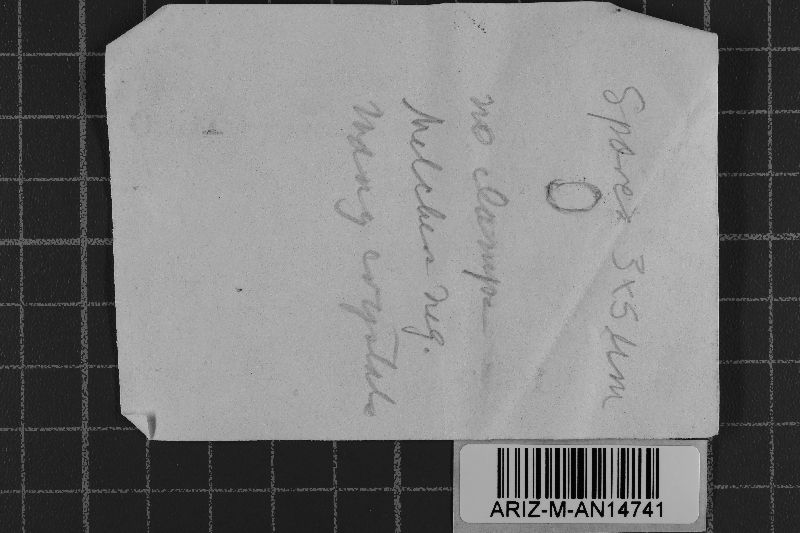 Spores 3x5 µm
no clamps
Melzers neg.
Many crystals
ARIZ-M-AN14741